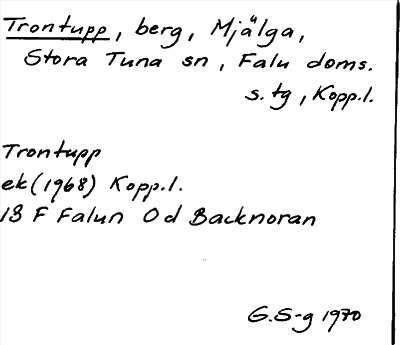 Trontupp, berg, Mjälga,
Stora Tuna sn, Falu doms.
s. tg, Kopp.l.
Trontupp
ek (1968) Kopp.l.
13 F Falun 0 d Backnoran
G. S-g 1970